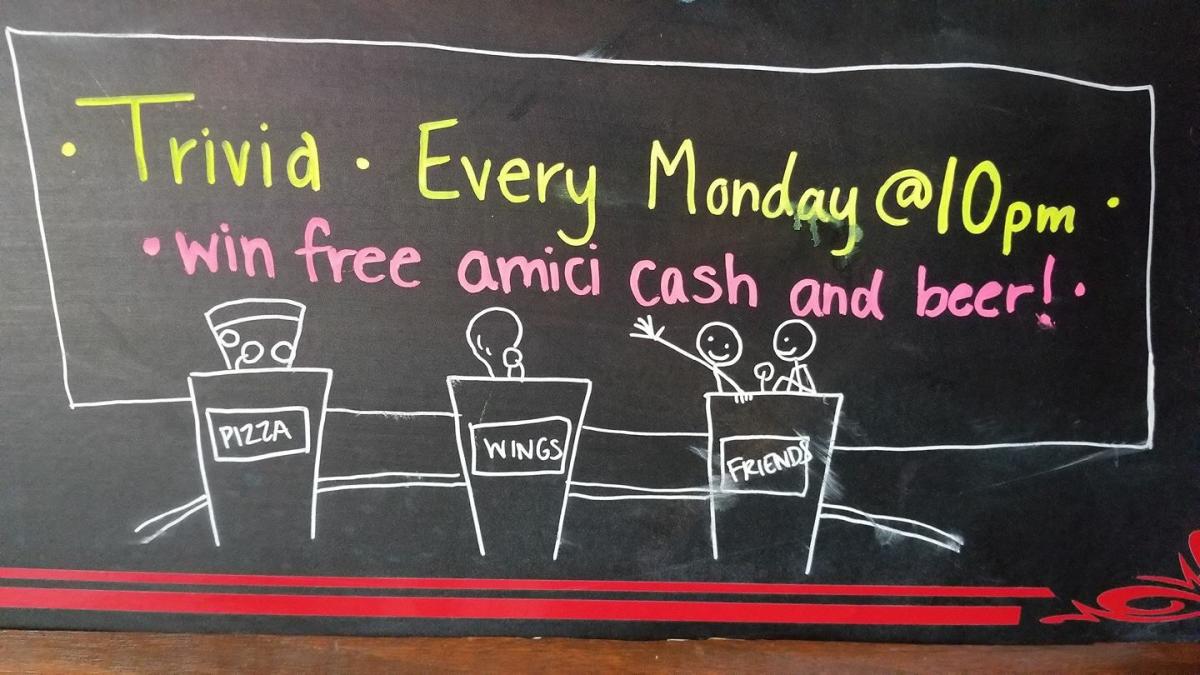 · Trivia · Every Monday @10pm ·
· win free amici cash and beer! ·
PIZZA
WINGS
FRIENDS